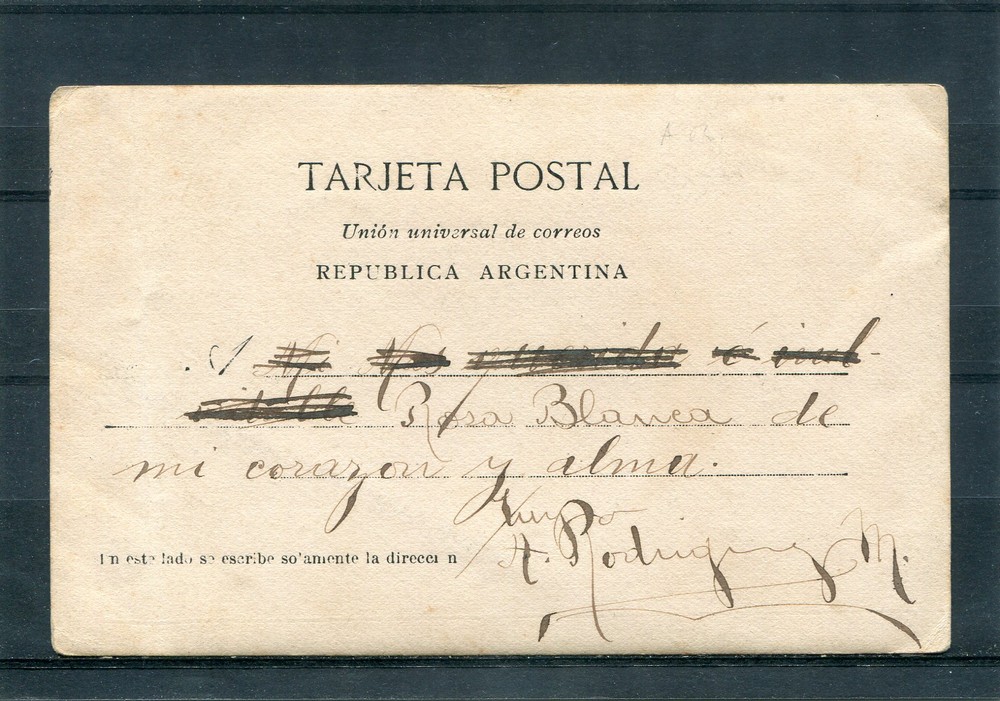 TARJETA POSTAL
Unión universal de correos
REPUBLICA ARGENTINA
Mi querida é
Rosa Blanca de
mi corazon y alma.
A. Rodriguez M.
En este lado se escribe solamente la direcci n